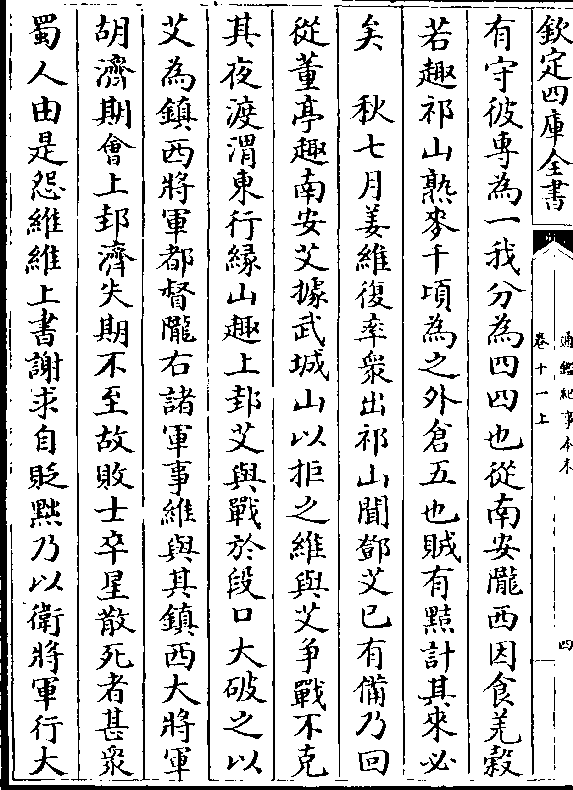 欽定四庫全書
通鑑紀事本末
卷十一上
四
有守彼專為一我分為四四也從南安隴西因食羌穀
若趣祁山熟麥千頃為之外倉五也賊有黠計其來必
矣　秋七月姜維復率衆出祁山聞鄧艾已有備乃回
從董亭趣南安艾據武城山以拒之維與艾爭戰不克
其夜渡渭東行緣山趣上邽艾與戰於段口大破之以
艾為鎮西將軍都督隴右諸軍事維與其鎮西大將軍
胡濟期會上邽濟失期不至故敗士卒星散死者甚衆
蜀人由是怨維維上書謝求自貶黜乃以衛將軍行大